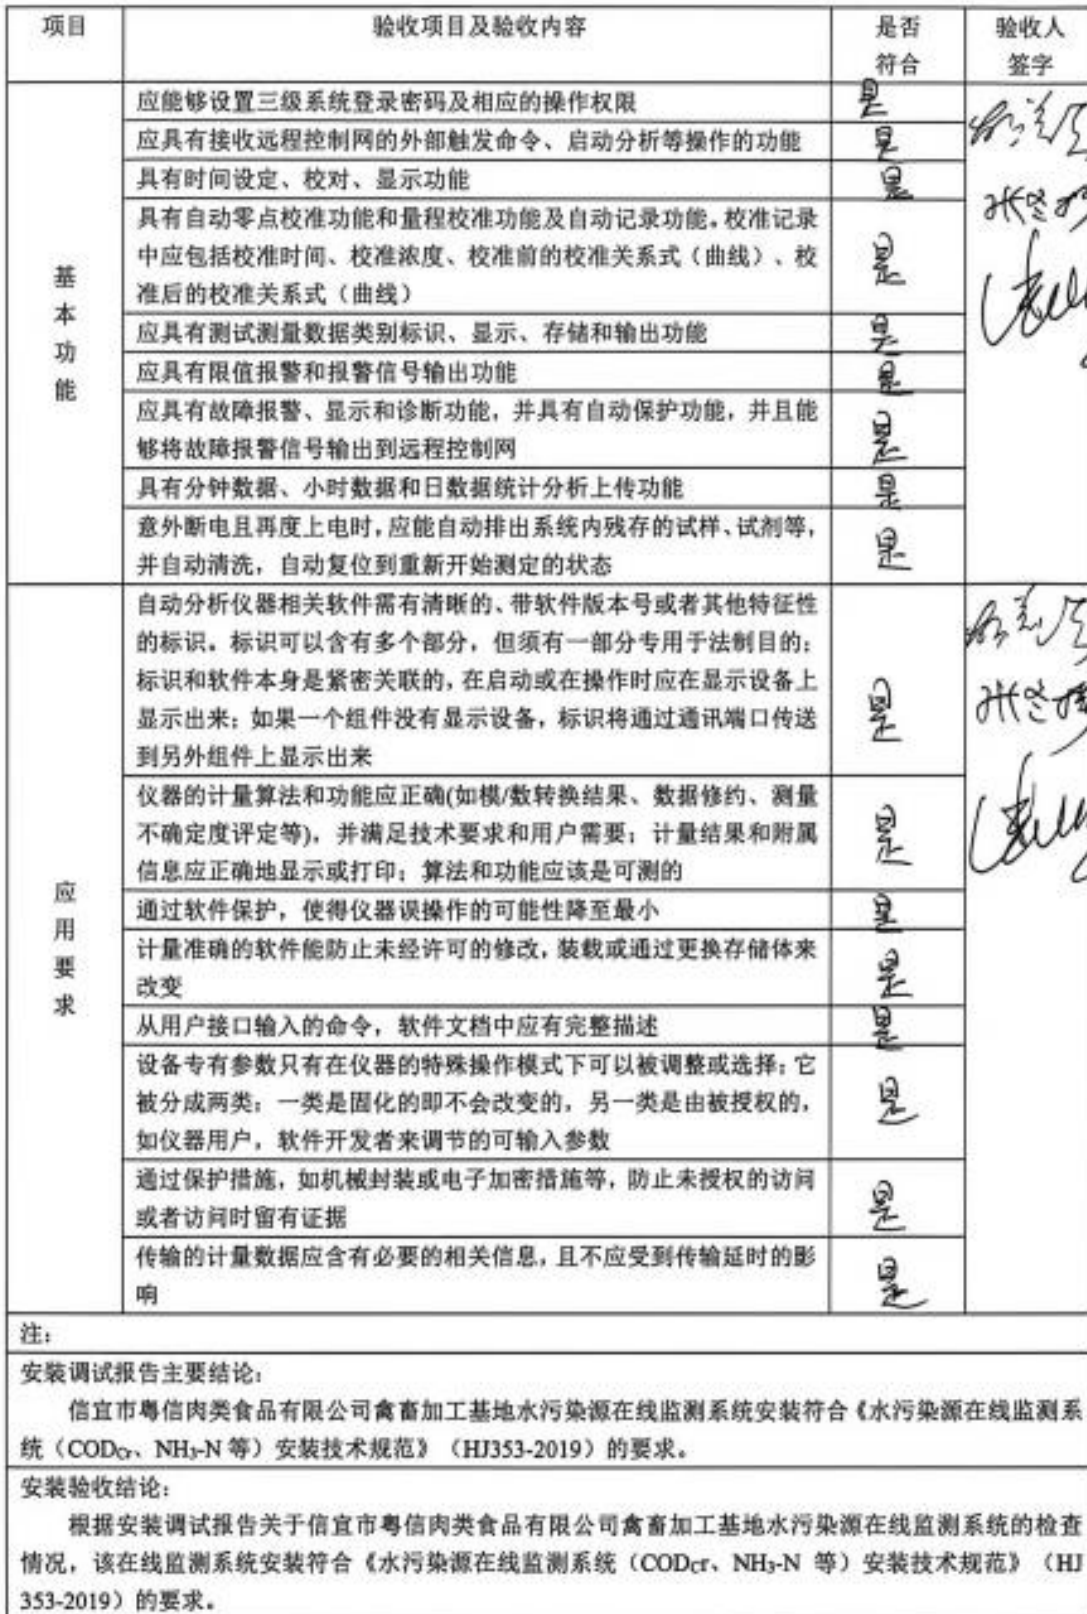 项目 验收项目及验收内容 是否 验收人
符合 签字
应能够设置三级系统登录密码及相应的操作权限 是
应具有接收远程控制网的外部触发命令、启动分析等操作的功能 是
具有时间设定、校对、显示功能 是
具有自动零点校准功能和量程校准功能及自动记录功能。校准记录
中应包括校准时间、校准浓度、校准前的校准关系式（曲线）、校 是
准后的校准关系式（曲线）
基本功能
应具有测试测量数据类别标识、显示、存储和输出功能 是
应具有限值报警和报警信号输出功能 是
应具有故障报警、显示和诊断功能，并具有自动保护功能，并且能
够将故障报警信号输出到远程控制网 是
具有分钟数据、小时数据和日数据统计分析上传功能 是
意外断电且再度上电时，应能自动排出系统内残存的试样、试剂等，
并自动清洗，自动复位到重新开始测定的状态 是
自动分析仪器相关软件需有清晰的、带软件版本号或者其他特征性
的标识。标识可以含有多个部分，但须有一部分专用于法制目的；
标识和软件本身是紧密关联的，在启动或在操作时应在显示设备上
显示出来；如果一个组件没有显示设备，标识将通过通讯端口传送 是
到另外组件上显示出来
仪器的计量算法和功能应正确(如模/数转换结果、数据修约、测量
不确定度评定等)，并满足技术要求和用户需要；计量结果和附属 是
信息应正确地显示或打印；算法和功能应该是可测的
应用要求
通过软件保护，使得仪器误操作的可能性降至最小 是
计量准确的软件能防止未经许可的修改，装载或通过更换存储体来
改变 是
从用户接口输入的命令，软件文档中应有完整描述 是
设备专有参数只有在仪器的特殊操作模式下可以被调整或选择；它
被分成两类：一类是固化的即不会改变的，另一类是由被授权的， 是
如仪器用户，软件开发者来调节的可输入参数
通过保护措施，如机械封装或电子加密措施等，防止未授权的访问
或者访问时留有证据 是
传输的计量数据应含有必要的相关信息，且不应受到传输延时的影
响 是
注：
安装调试报告主要结论：
信宜市粤信肉类食品有限公司禽畜加工基地水污染源在线监测系统安装符合《水污染源在线监测系
统（CODcr、NH₃-N 等）安装技术规范》（HJ353-2019）的要求。
安装验收结论：
根据安装调试报告关于信宜市粤信肉类食品有限公司禽畜加工基地水污染源在线监测系统的检查
情况，该在线监测系统安装符合《水污染源在线监测系统（CODcr、NH₃-N 等）安装技术规范》（HJ
353-2019）的要求。